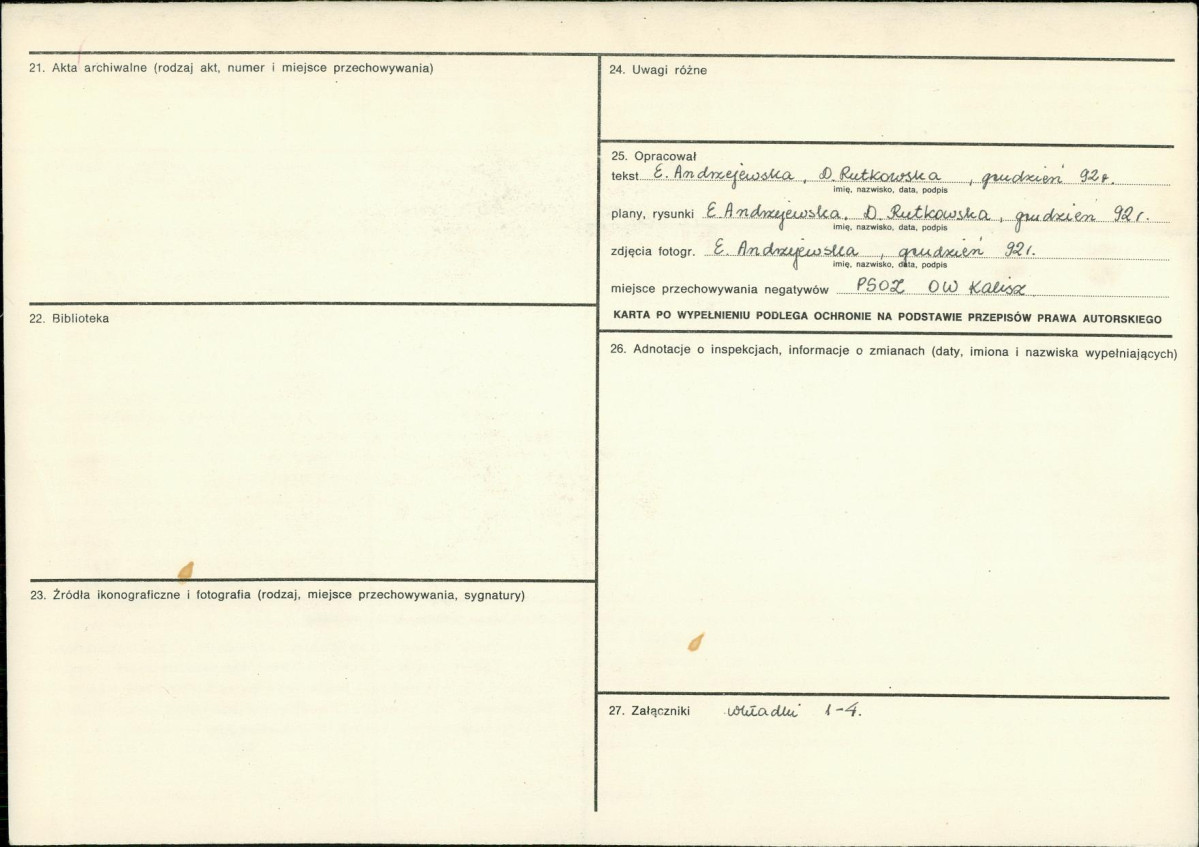 21. Akta archiwalne (rodzaj akt, numer i miejsce przechowywania)
22. Biblioteka
23. Źródła ikonograficzne i fotografia (rodzaj, miejsce przechowywania, sygnatury)
24. Uwagi różne
25. Opracował
tekst E. Andrzejewska, D. Rutkowska, grudzień 92r.
imię, nazwisko, data, podpis
plany, rysunki E Andrzejewska, D. Rutkowska, grudzień 92r.
imię, nazwisko, data, podpis
zdjęcia fotogr. E. Andrzejewska, grudzień 92r.
imię, nazwisko, data, podpis
miejsce przechowywania negatywów PSOZ OW Kalisz
KARTA PO WYPEŁNIENIU PODLEGA OCHRONIE NA PODSTAWIE PRZEPISÓW PRAWA AUTORSKIEGO
26. Adnotacje o inspekcjach, informacje o zmianach (daty, imiona i nazwiska wypełniających)
27. Załączniki wkładki 1-4.